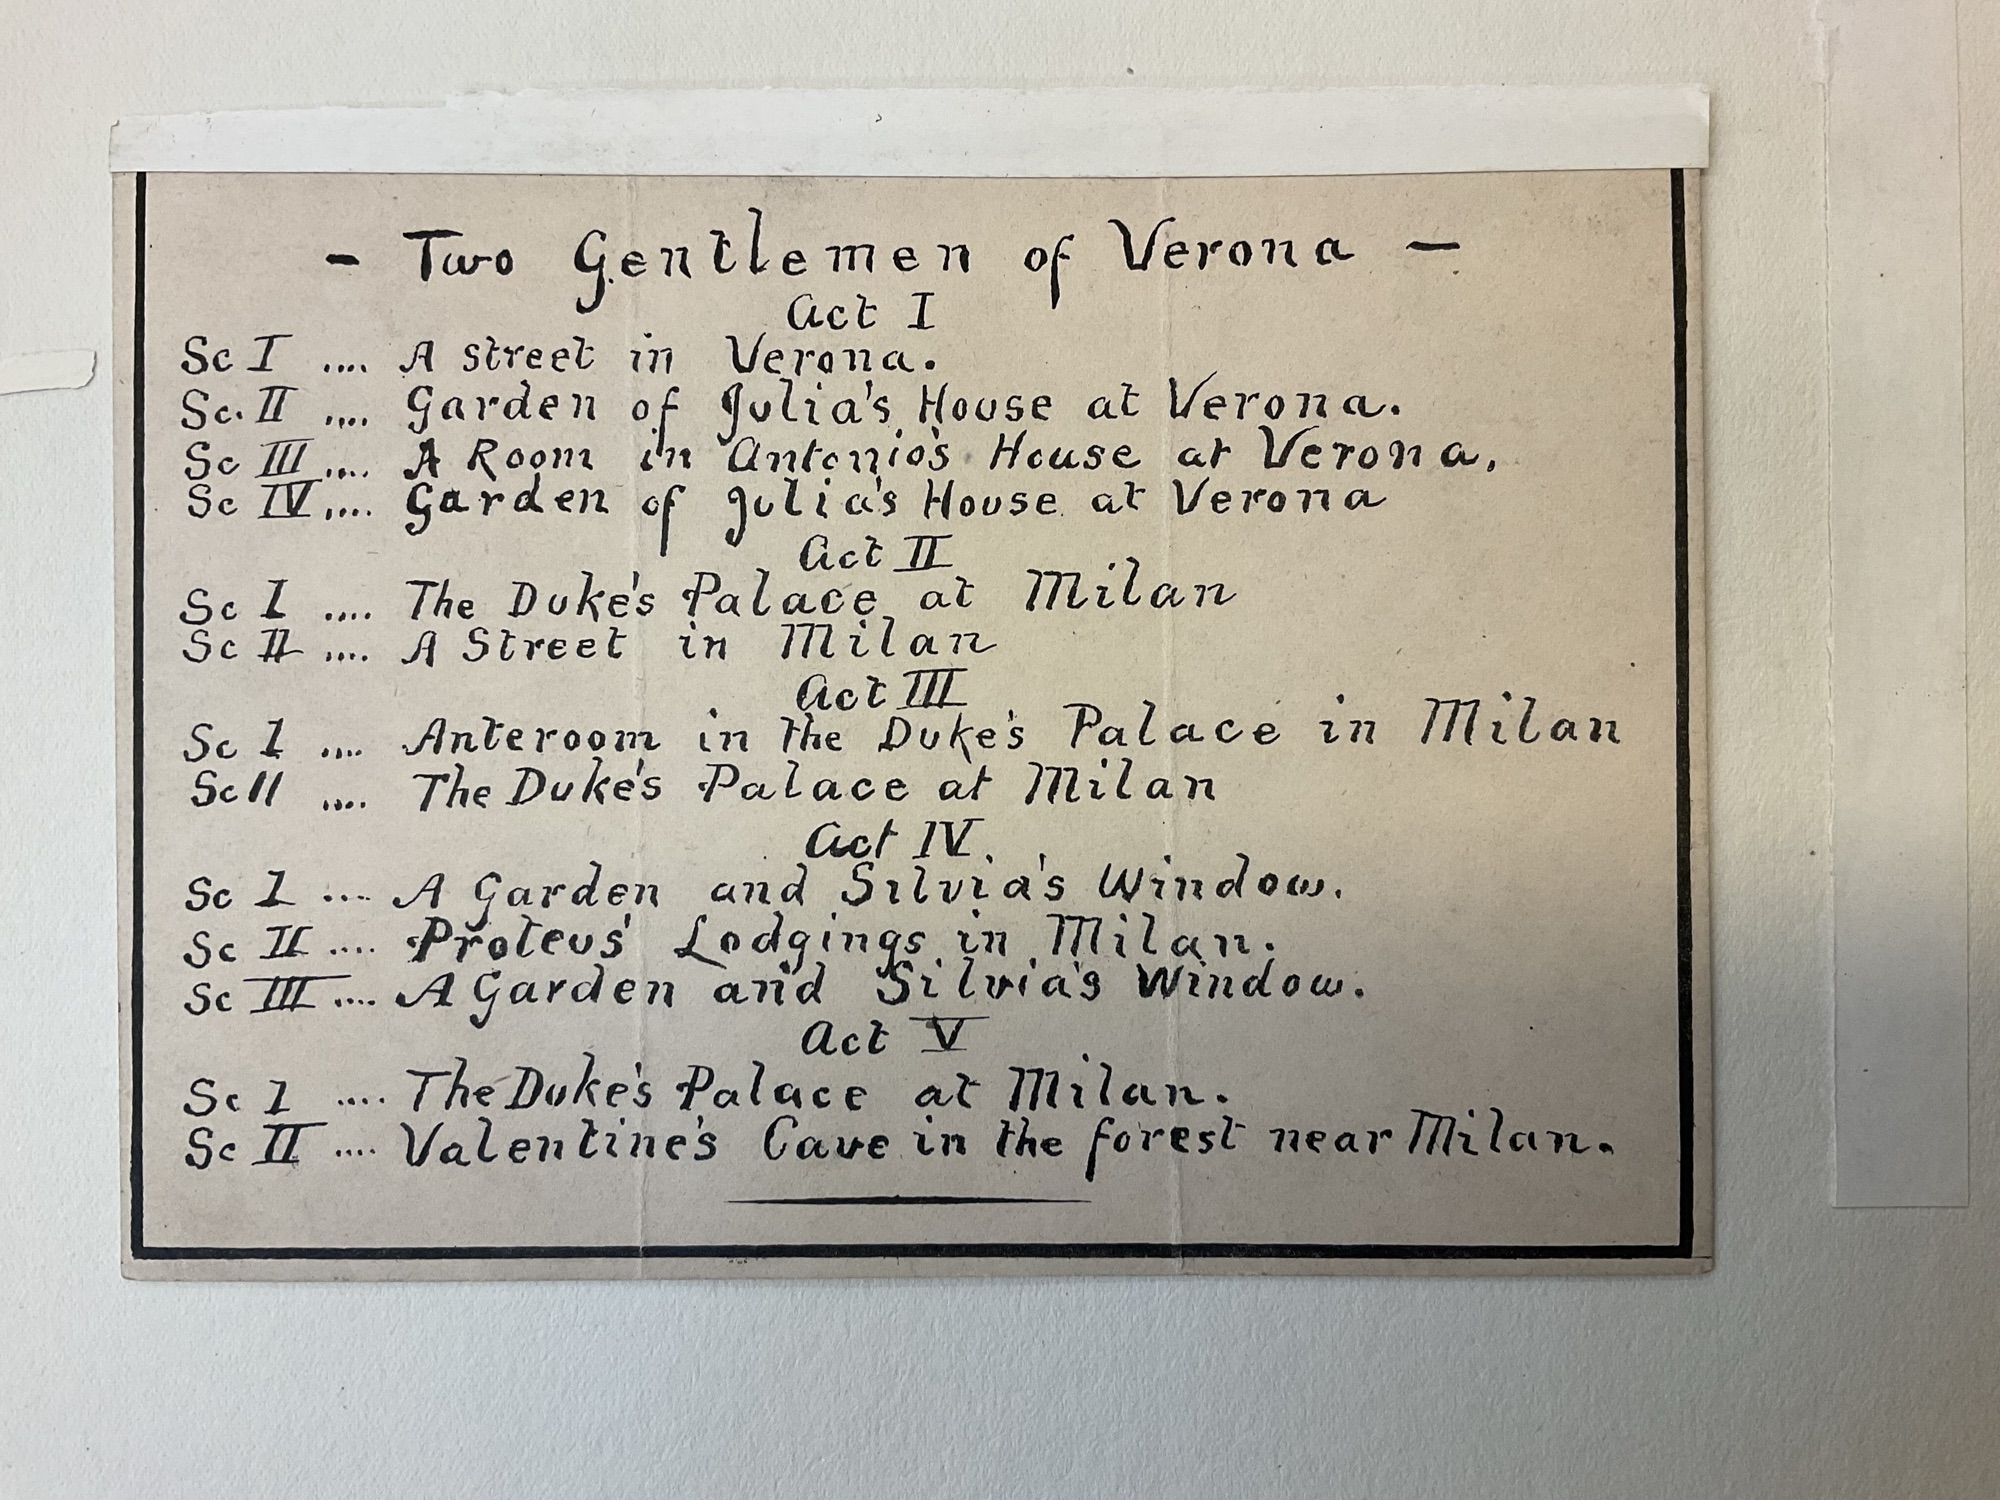 - Two Gentlemen of Verona -
Act I
Sc I .... A street in Verona.
Sc. II .... Garden of Julia's House at Verona.
Sc III .... A Room in Antonio's House at Verona.
Sc IV .... Garden of Julia's House at Verona
Act II
Sc I .... The Duke's Palace at Milan
Sc II .... A Street in Milan
Act III
Sc I .... Anteroom in the Duke's Palace in Milan
Sc II .... The Duke's Palace at Milan
Act IV.
Sc I .... A Garden and Silvia's Window.
Sc II .... Proteus' Lodgings in Milan.
Sc III .... A Garden and Silvia's Window.
Act V
Sc I .... The Duke's Palace at Milan.
Sc II .... Valentine's Cave in the forest near Milan.